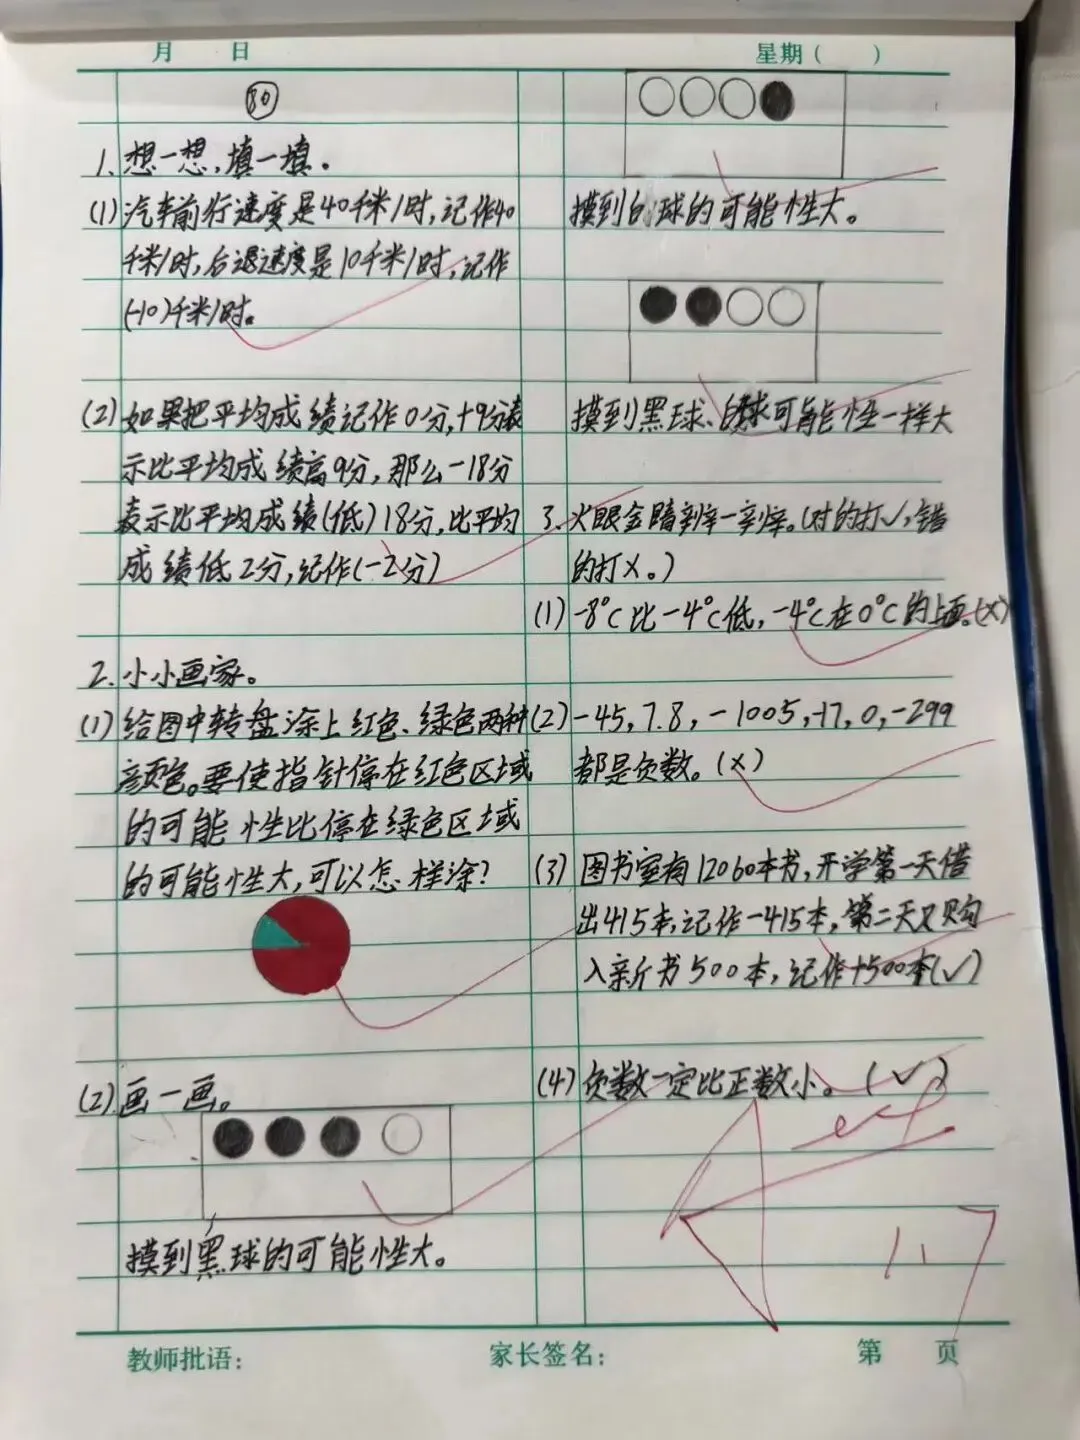 月 日
星期( )
80
1. 想一想,填一填。
(1) 汽车前行速度是40千米/时,记作40
千米/时,后退速度是10千米/时,记作
(-10)千米/时。
(2) 如果把平均成绩记作0分,+9分表
示比平均成绩高9分,那么-18分
表示比平均成绩(低)18分,比平均
成绩低2分,记作(-2分)
2. 小小画家。
(1) 给图中转盘涂上红色、绿色两种
颜色。要使指针停在红色区域
的可能性比停在绿色区域
的可能性大,可以怎样涂?
(2) 画一画。
摸到黑球的可能性大。
摸到白球的可能性大。
摸到黑球、白球可能性一样大
3. 火眼金睛辨一辨。(对的打√,错
的打×。)
(1) -8°C比-4°C低,-4°C在0°C的上面。(×)
(2) -45,7.8,-1005,-17,0,-299
都是负数。(×)
(3) 图书室有12060本书,开学第一天借
出415本,记作-415本,第二天又购
入新书500本,记作+500本(√)
(4) 负数一定比正数小。(√)
教师批语:
家长签名:
第 页